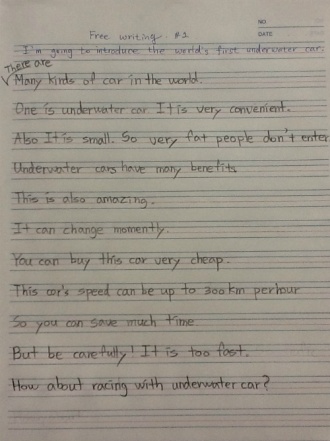 NO
DATE
Free writing - #1
I'm going to introduce the world's first underwater car.
There are
Many kinds of car in the world.
One is underwater car. It is very convenient.
Also It is small. So very fat people don't enter
Underwater cars have many benefits
This is also amazing.
It can change momently.
You can buy this car very cheap.
This car's speed can be up to 300 km per hour
So you can save much time
But be carefully! It is too fast.
How about racing with underwater car?